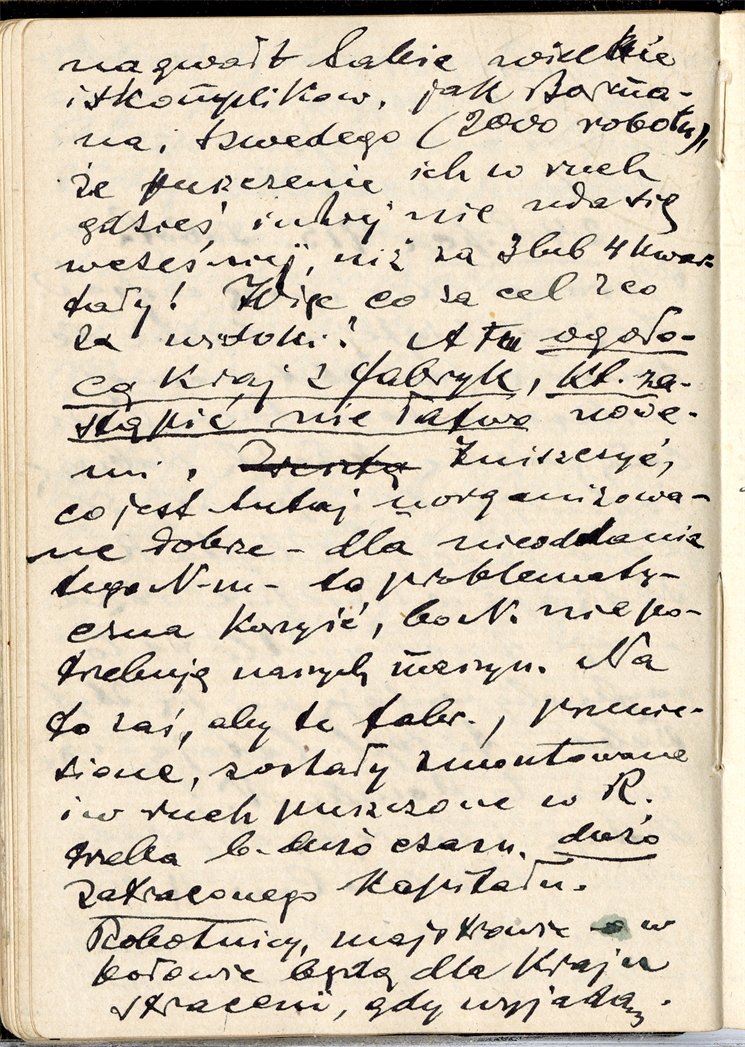 nagwałt takie wielkie
i skomplikow. jak Borma-
na i Szwedego (2000 robotn),
że puszczenie ich w ruch
gdzieś indziej nie uda się
wcześniej, niż za 3 lub 4 kwar-
tały! Więc co za cel i co
za widoki? A tu ogoło-
cą kraj z fabryk, kt. za-
stąpić nie łatwo nowe-
mi. Zresztą Zniszczyć,
co jest tutaj zorganizowa-
ne dobrze – dla nieoddania
tego N-m – to problematy-
czna korzyść, bo N. nie po-
trzebują naszych maszyn. Na
to zaś, aby te fabr., przenie-
sione, zostały zmontowane
i w ruch puszczone w R.
trzeba b. dużo czasu, dużo
zatraconego kapitału.
Robotnicy, majstrowie w
połowie będą dla kraju
straceni, gdy wyjadą.